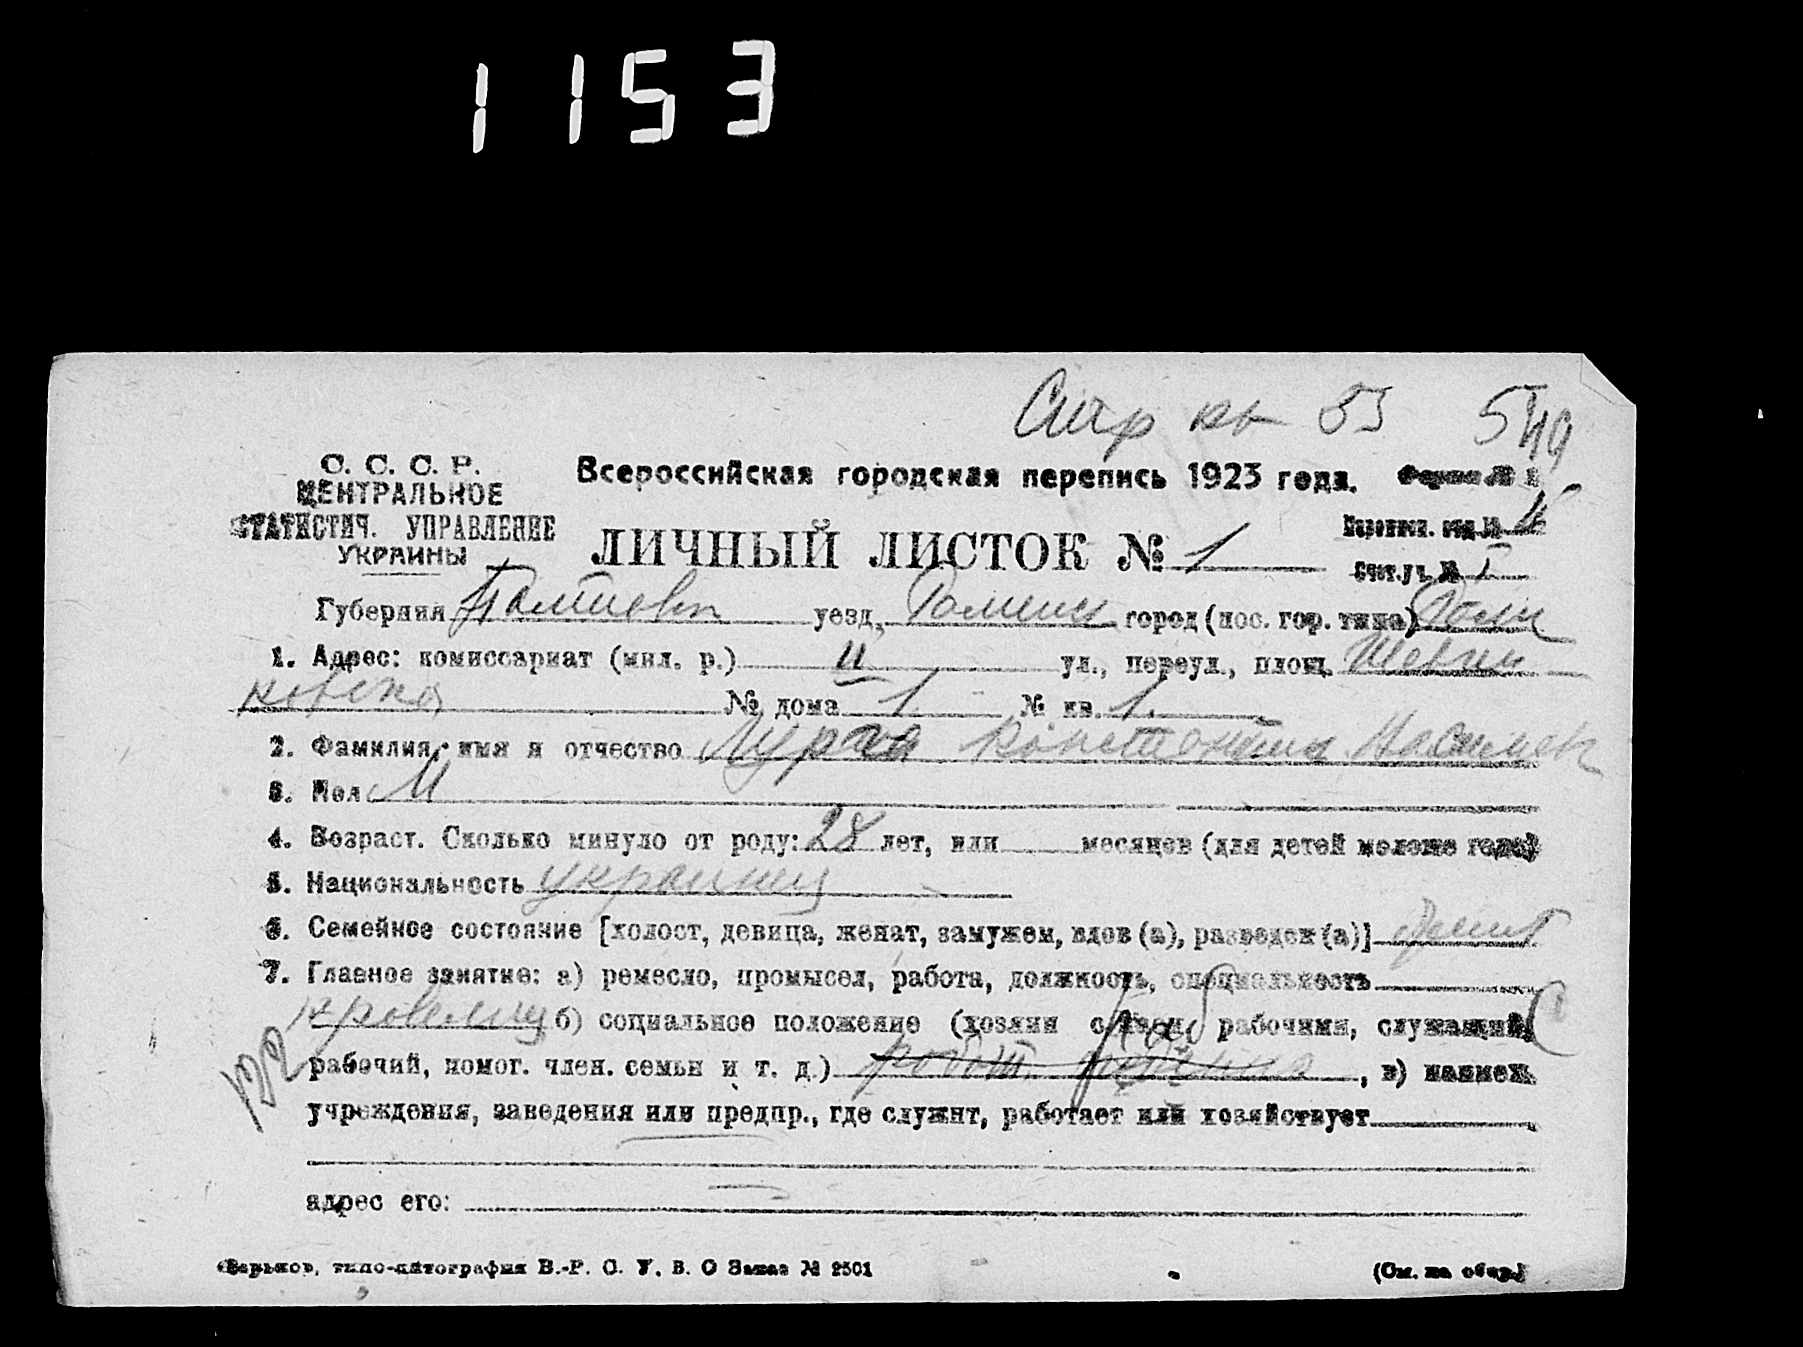 1153
Стр кв 53 549
С. С. С. Р.
ЦЕНТРАЛЬНОЕ
СТАТИСТИЧ. УПРАВЛЕНИЕ
УКРАИНЫ
Всероссийская городская перепись 1923 года. Форма № 1
ЛИЧНЫЙ ЛИСТОК № 1
Инспек. отд. № II
Счет. уч. № I
Губерния Полтавск уезд, Роменск город (пос. гор. типа) Ромн
1. Адрес: комиссариат (мил. р.) II ул., переул., площ. Шевчен
ковска № дома 1 № кв. 1.
2. Фамилия, имя и отчество Константин
3. Пол М
4. Возраст. Сколько минуло от роду: 28 лет, или месяцев (для детей моложе года)
5. Национальность украинец
6. Семейное состояние [холост, девица, женат, замужем, вдов (а), разведен (а)]
7. Главное занятие: а) ремесло, промысел, работа, должность, специальность
кровельщ б) социальное положение (хозяин с наем. рабочими, служащий,
рабочий, помог. член. семьи и т. д.) , в) наимен.
учреждения, заведения или предпр., где служит, работает или хозяйствует
адрес его:
Харьков, типо-литография В.-Р. С. У. В. О Заказ № 2501 (См. на обор.)